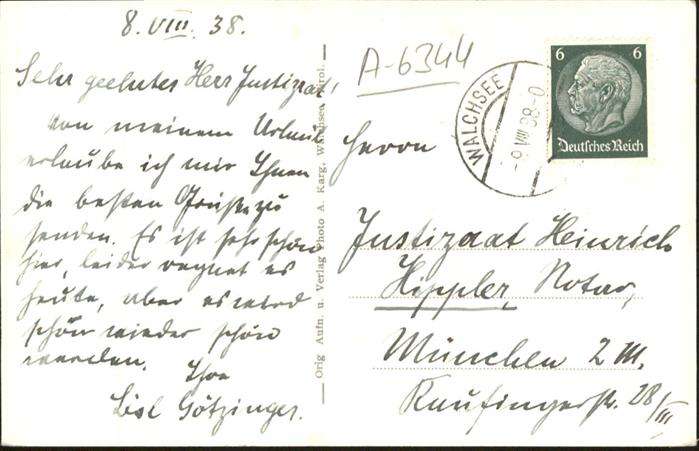 8. VIII. 38.
Sehr geehrter Herr Justizrat!
von meinem Urlaub
erlaube ich mir Ihnen
die besten Grüsse zu
senden. Es ist sehr schön
hier, leider regnet es
heute, aber es wird
schön wieder schön
werden.
Ihre
Lisl Götzinger.
Orig Aufn. u. Verlag Photo A. Karg, Walchsee, Tirol.
A-6344
WALCHSEE
-9.VIII 38-0
6 6
Deutsches Reich
Herrn
Justizrat Heinrich
Hippler, Notar,
München 2 M.
Kaufingerstr. 28/III